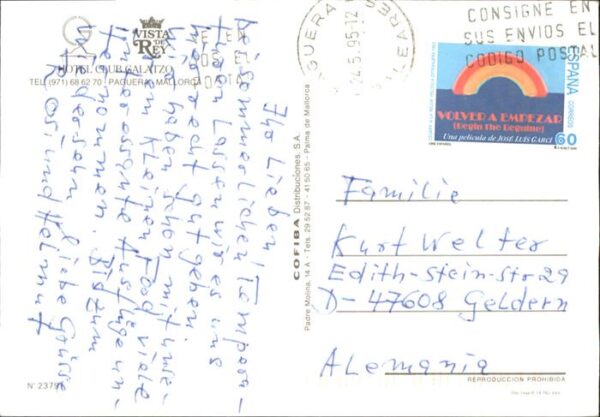 VISTA
DE
REY
HOTEL CLUB GALATZO
TEL (971) 68 62 70 - PAGUERA - MALLORCA
Ihr Lieben!
Bei sommerlichen Tempera-
turen lassen wir es uns
hier recht gut gehen.
Wir haben schon mit unse-
rem kleinen Ford viele
interessante Ausflüge un-
ternommen. Bis zum
Wiedersehn, liebe Grüsse
Rosi und Helmut
N° 2379
COFIBA Distribuciones, S.A.
Padre Molina, 14 A - Tels. 29 52 87 - 41 50 65 - Palma de Mallorca
PAGUERA
BALEARES
24.5.95-12
CONSIGNE EN
SUS ENVIOS EL
CODIGO POSTAL
ESPAÑA
CORREOS
VOLVER A EMPEZAR
(Begin the Beguine)
Una película de JOSÉ LUIS GARCI
CINE ESPAÑOL
60
Familie
Kurt Welter
Edith-Stein-Str 29
D-47608 Geldern
Alemania
REPRODUCCION PROHIBIDA